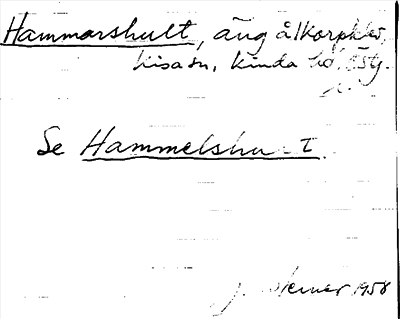 Hammarshult, äng å Korpklev,
Kisa sn, Kinda hd, Ög.
Se Hammelshult.
1958